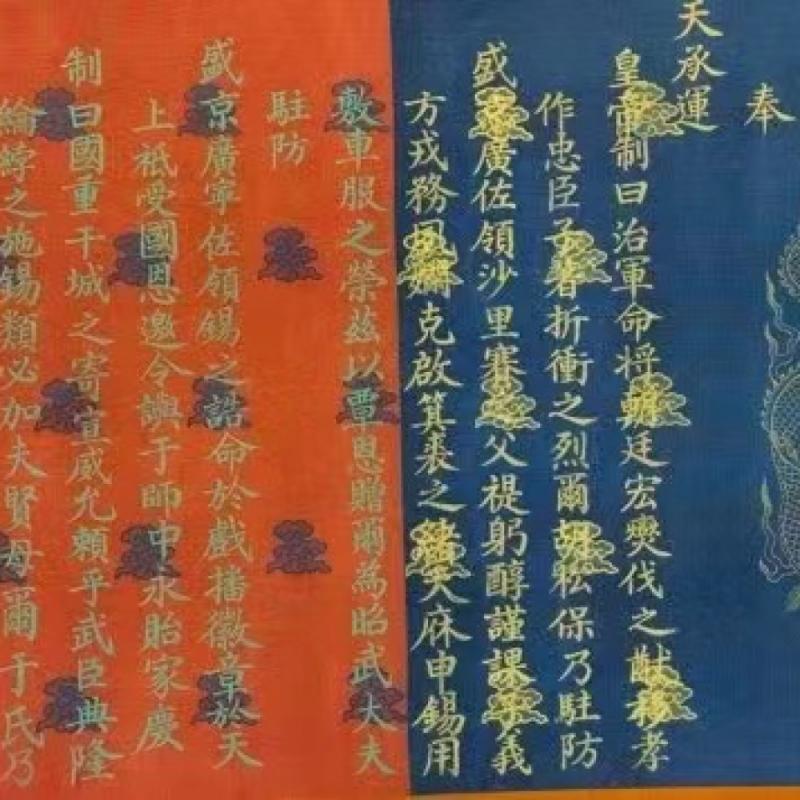 奉
天承運
皇帝制曰治軍命將朝廷宏爕伐之猷移孝
作忠臣子著折衝之烈爾胡松保乃駐防
盛京廣佐領沙里賽之父禔躬醇謹課子義
方戎務夙嫻克啟箕裘之緒天庥申錫用
敷車服之榮茲以覃恩贈爾為昭武大夫
駐防
盛京廣寧佐領錫之誥命於戲播徽章於天
上祗受國恩邀令譽于師中永貽家慶
制曰國重干城之寄宣威允賴乎武臣典隆
綸綍之施錫類必加夫賢母爾于氏乃